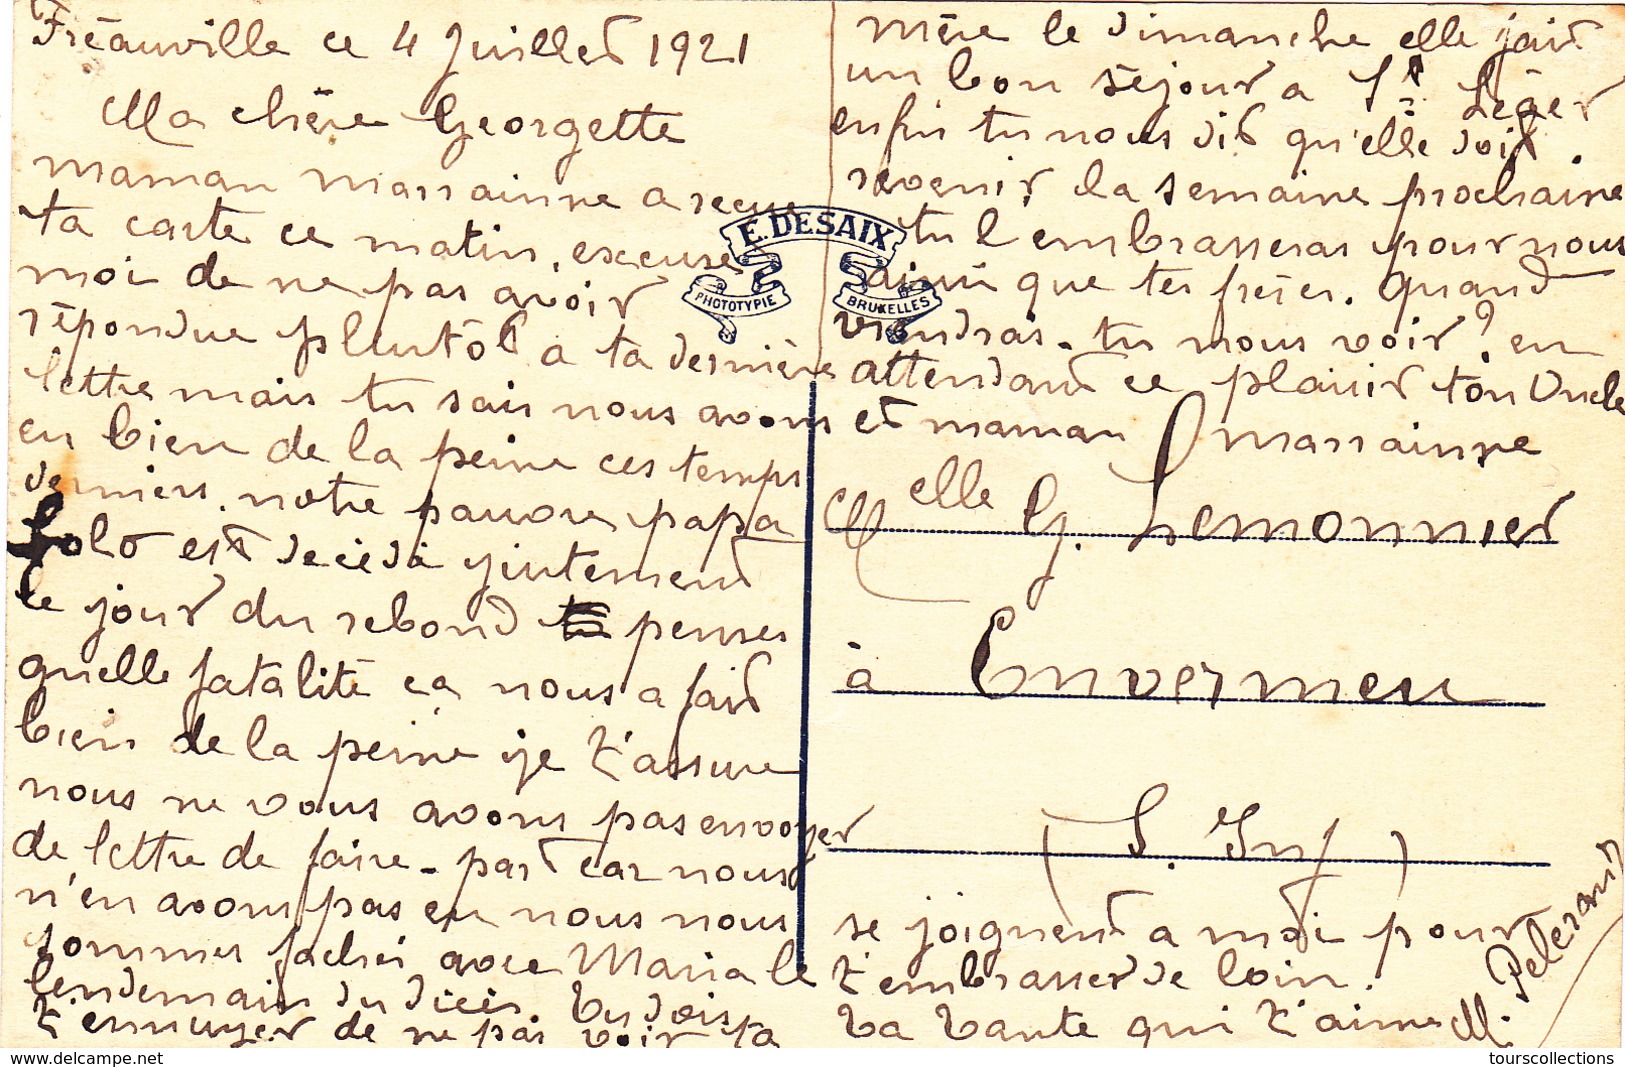 Fréauville ce 4 Juillet 1921
Ma chère Georgette
maman Marrainne a reçue
ta carte ce matin, excuse
moi de ne pas avoir
répondue plutôt a ta dernière
lettre mais tu sais nous avons
eu bien de la peine ces temps
derniers, notre pauvre papa
Lolo est decédé
le jour du rebond penses
quelle fatalité ça nous a fait
bien de la peine je t'assure
nous ne vous avons pas envoyer
de lettre de faire-part car nous
n'en avons pas eu nous nous
sommes fachés avec Maria le
lendemain du décès tu dois
t'ennuyer de ne pas voir ta
mère le dimanche elle fait
un bon séjour a St Léger
enfin tu nous dit qu'elle doit
revenir la semaine prochaine
tu l'embrasseras pour nous
ainsi que tes frères. Quand
viendras-tu nous voir? en
attendant ce plaisir ton Oncle
et maman Marrainne
se joignent a moi pour
t'embrasser de loin.
ta tante qui t'aime M. Pelerand
E. DESAIX
PHOTOTYPIE BRUXELLES
Melle G. Lemonnier
à Envermeu
(S. Inf)
www.delcampe.net
tourscollections